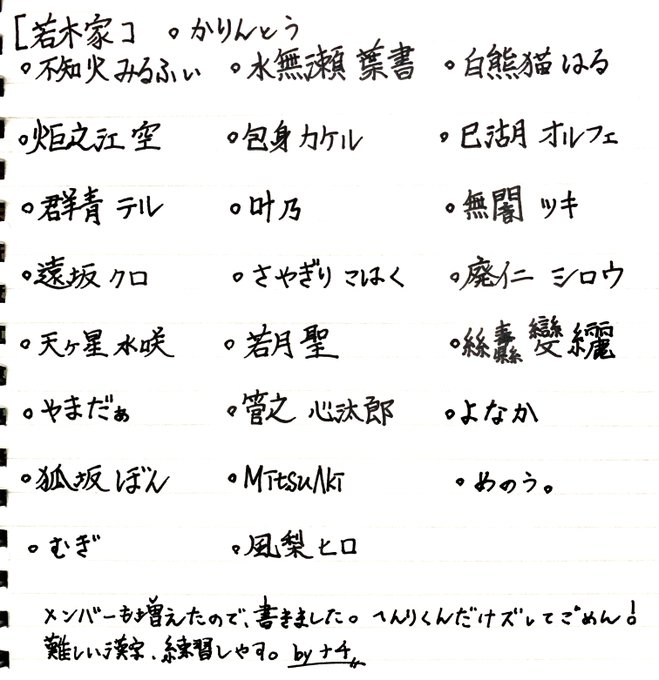 [若木家] ○かりんとう
○不知火みるふぃ ○水無瀬 葉書 ○白熊猫 はる
○炬之江 空 ○包身カケル ○巳湖月 オルフェ
○群青 テル ○叶乃 ○無闇 ツキ
○遠坂クロ ○さやぎり こはく ○廃仁 シロウ
○天ヶ星 水咲 ○若月 聖
○やまだぁ ○菅之 心汰郎 ○よなか
○狐坂 ぼん ○MitsuAki ○めのう。
○むぎ ○風梨ヒロ
メンバーも増えたので、書きました。へんりくんだけズレてごめん!
難しい漢字、練習しやす。by ナチ